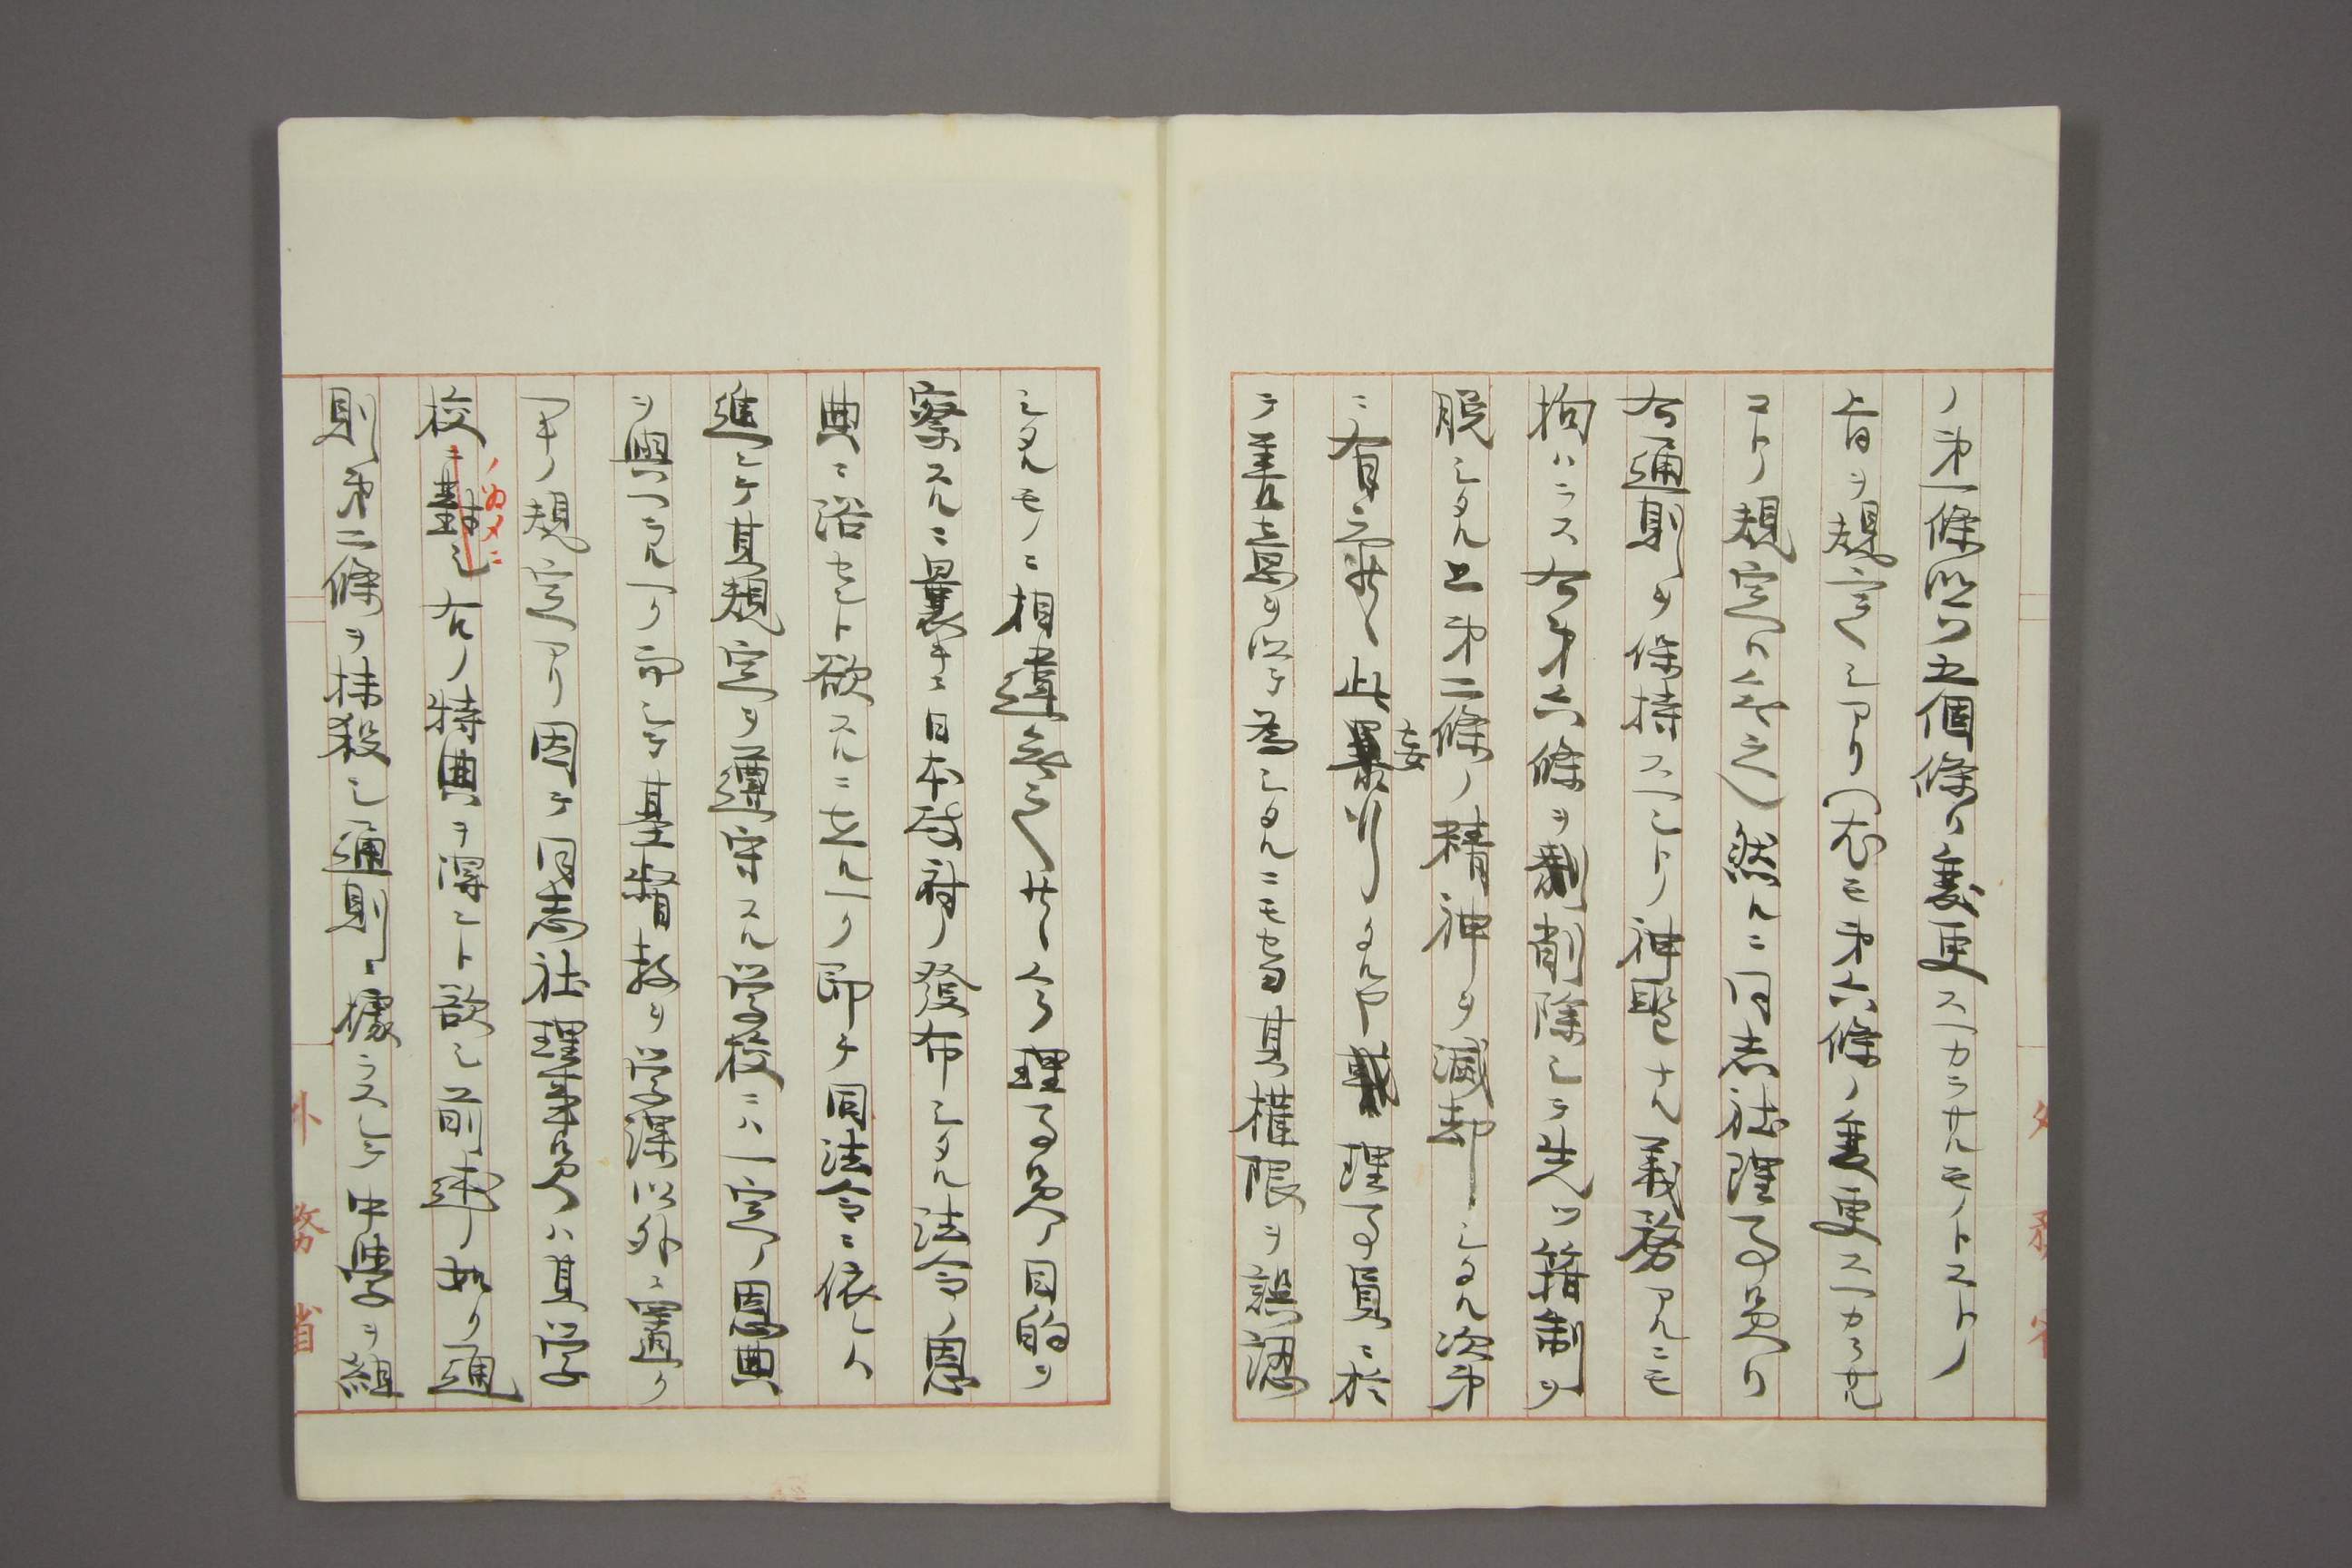 ノ第一條以下五個條ハ變更スヘカラサルモノトストノ
旨ヲ規定シアリ(尤モ第六條ノ變更スヘカラサル
コトノ規定ハ之)然ルニ同志社理事員ハ
右通則ヲ保持スヘシトノ神聖ナル義務アルニモ
拘ハラス右第六條ヲ削除シテ先ツ籍制ヲ
脱シタル上第二條ノ精神ヲ滅却シタル次第
ニ有之此妄
挙タルヤ理事員ニ於
テ善意ヲ以テ為シタルニモセヨ其権限ヲ誤認
シタルモノニ相違無之サレハ今理事員ノ目的ヲ
察スルニ曩キニ日本政府ノ發布シタル法令ノ恩
典ニ浴セント欲スルニ在ルヘク即チ同法令ニ依レハ
進ンテ其規定ヲ遵守スル学校ニハ一定ノ恩典
ヲ與フヘク而シテ基督教ヲ学課以外ニ置ク
ヘキノ規定アリ因テ同志社理事員ハ其学
校ノ為メニ
右ノ特典ヲ得ント欲シ前述ノ如ク通
則第二條ヲ抹殺シ通則ニ據ラスシテ中学ヲ組
外務省
外務省